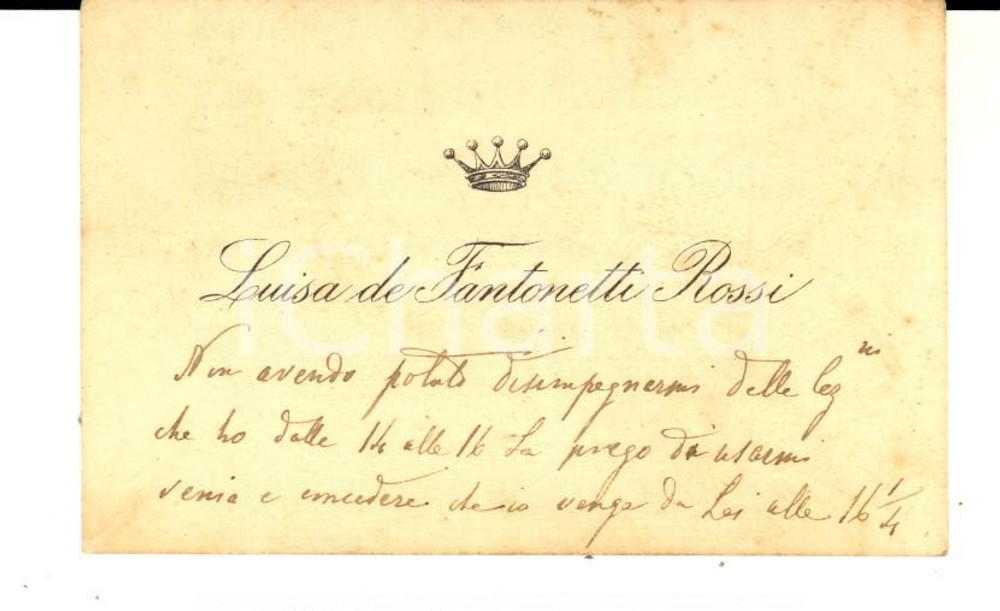 Luisa de Fantonetti Rossi
Non avendo potuto disimpegnarmi delle lez.ni
che ho dalle 14 alle 16 La prego di usarmi
venia e concedere che io venga da Lei alle 16 1/4
iCharta